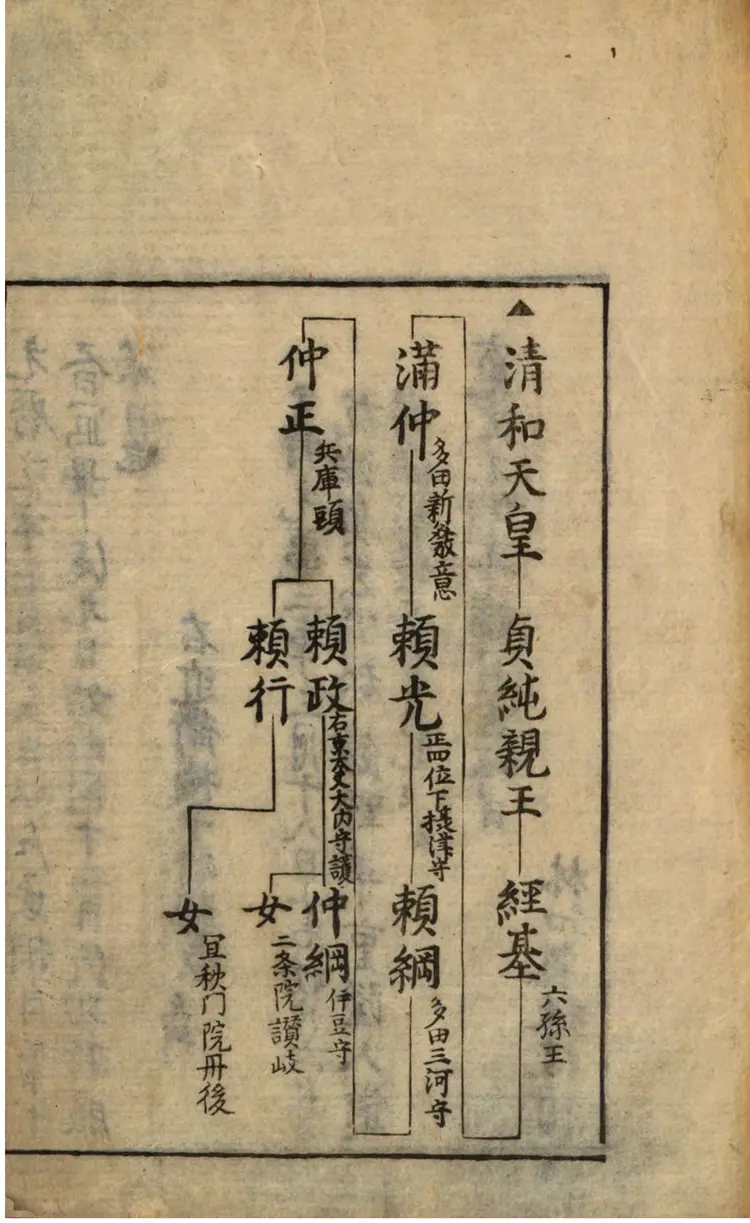 清和天皇
貞純親王
經基
六孫王
滿仲
多田新發意
頼光
正四位下摂津守
頼綱
多田三河守
仲正
兵庫頭
頼政
右京大夫大内守護
仲綱
伊豆守
女
二条院讃岐
頼行
女
宜秋门院丹後